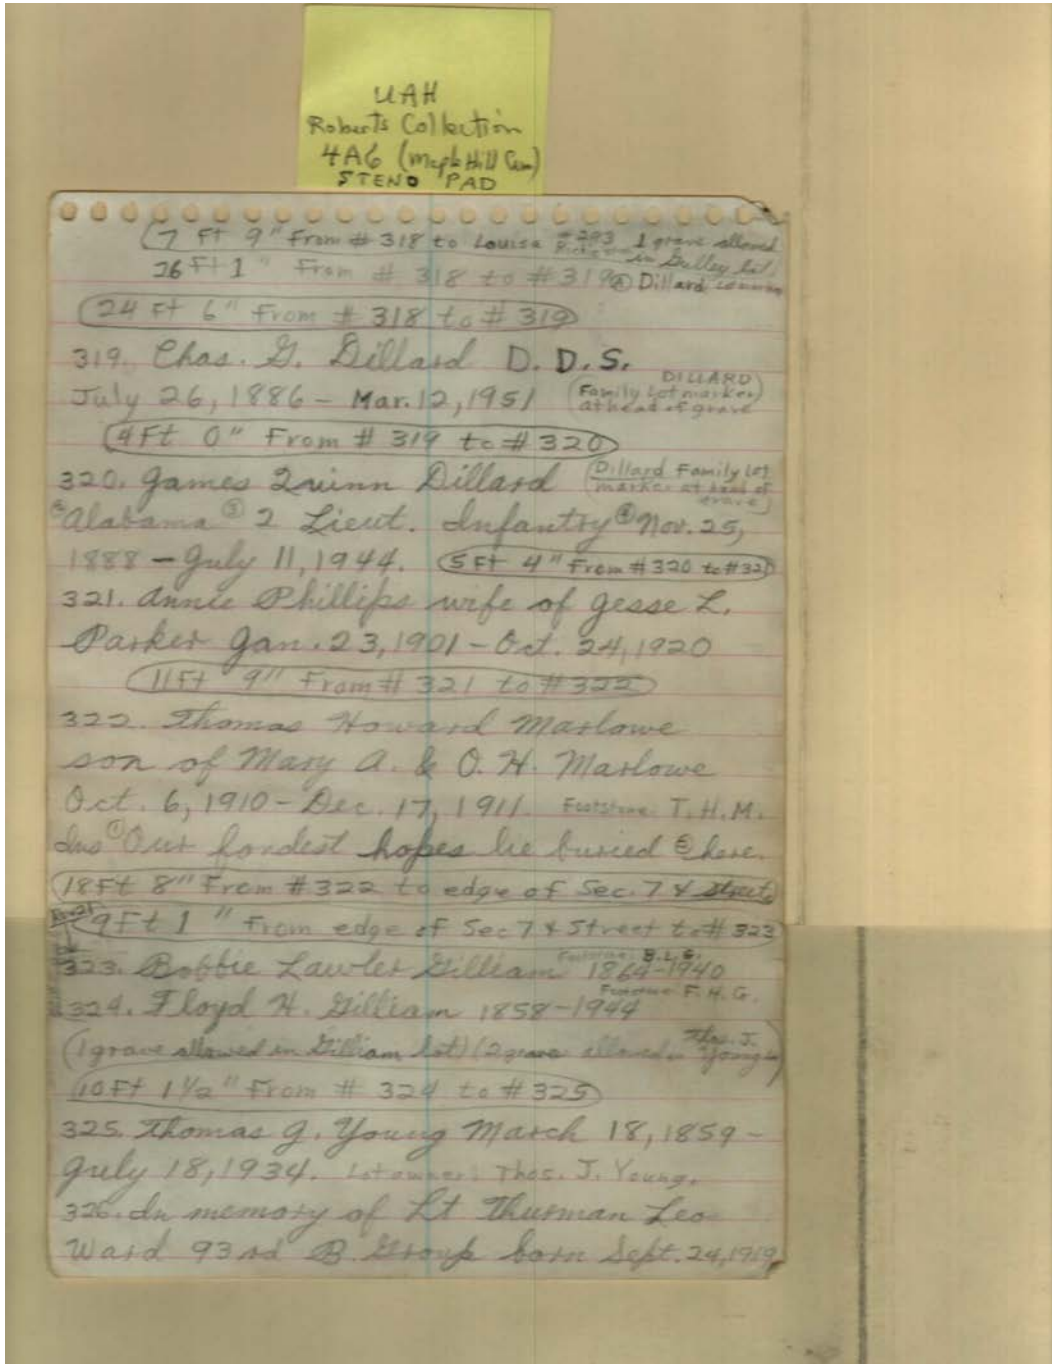 UAH
Roberts Collection
4A6 (Maple Hill Cem)
STENO PAD
(7 Ft 9" From # 318 to Louisa #293 1 grave allowed in Gulley lot.
26 Ft 1" From # 318 to # 319 Dillard
24 Ft 6" From # 318 to # 319
319. Chas. G. Dillard D.D.S.
July 26, 1886 - Mar. 12, 1951 (DILLARD Family Lot marker at head of grave)
4 Ft 0" From # 319 to # 320
320. James Quinn Dillard (Dillard Family Lot marker at head of grave)
② Alabama ③ 2 Lieut. Infantry ④ Nov. 25,
1888 - July 11, 1944. 5 Ft 4" From # 320 to # 321
321. Annie Phillips wife of Jesse L.
Parker Jan. 23, 1901 - Oct. 24, 1920
11 Ft 9" From # 321 to # 322
322. Thomas Howard Marlowe
son of Mary A. & O. H. Marlowe
Oct. 6, 1910 - Dec. 17, 1911. Footstone: T. H. M.
Ins ① Our fondest hopes lie buried ② here.
18 Ft 8" From # 322 to edge of Sec. 7 & street
9 Ft 1" From edge of Sec 7 & Street to # 323
323. Bobbie Lawler Gilliam Footstone: B. L. G. 1864-1940
324. Floyd H. Gilliam 1858-1944 Footstone F. H. G.
(1 grave allowed in Gilliam lot) (2 graves allowed in Thos. J. Young
10 Ft 1 1/2" From # 324 to # 325
325. Thomas J. Young March 18, 1859 -
July 18, 1934. Lot owner: Thos. J. Young.
326. In memory of Lt Thurman Leo
Ward 93rd B. Group born Sept. 24, 1919